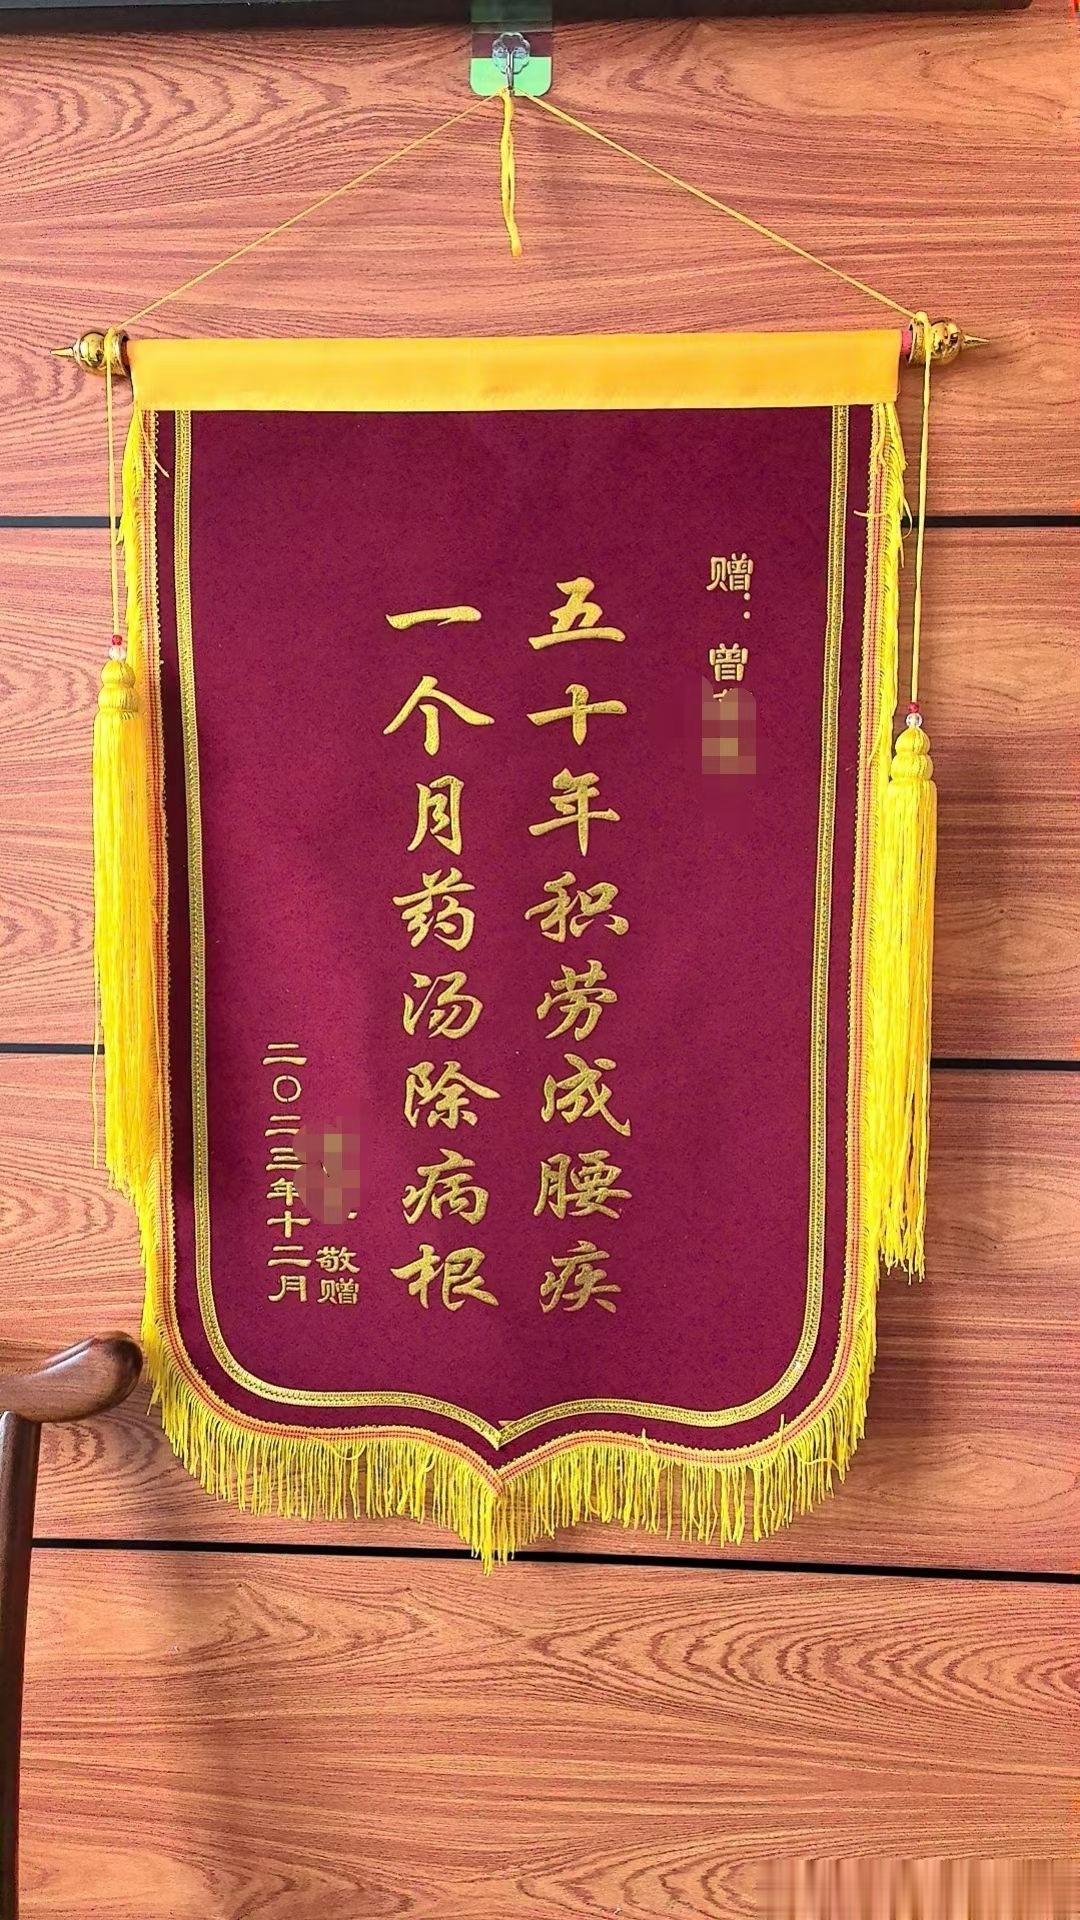 赠：曾
五十年积劳成腰疾
一个月药汤除病根
敬赠
二〇二三年十二月